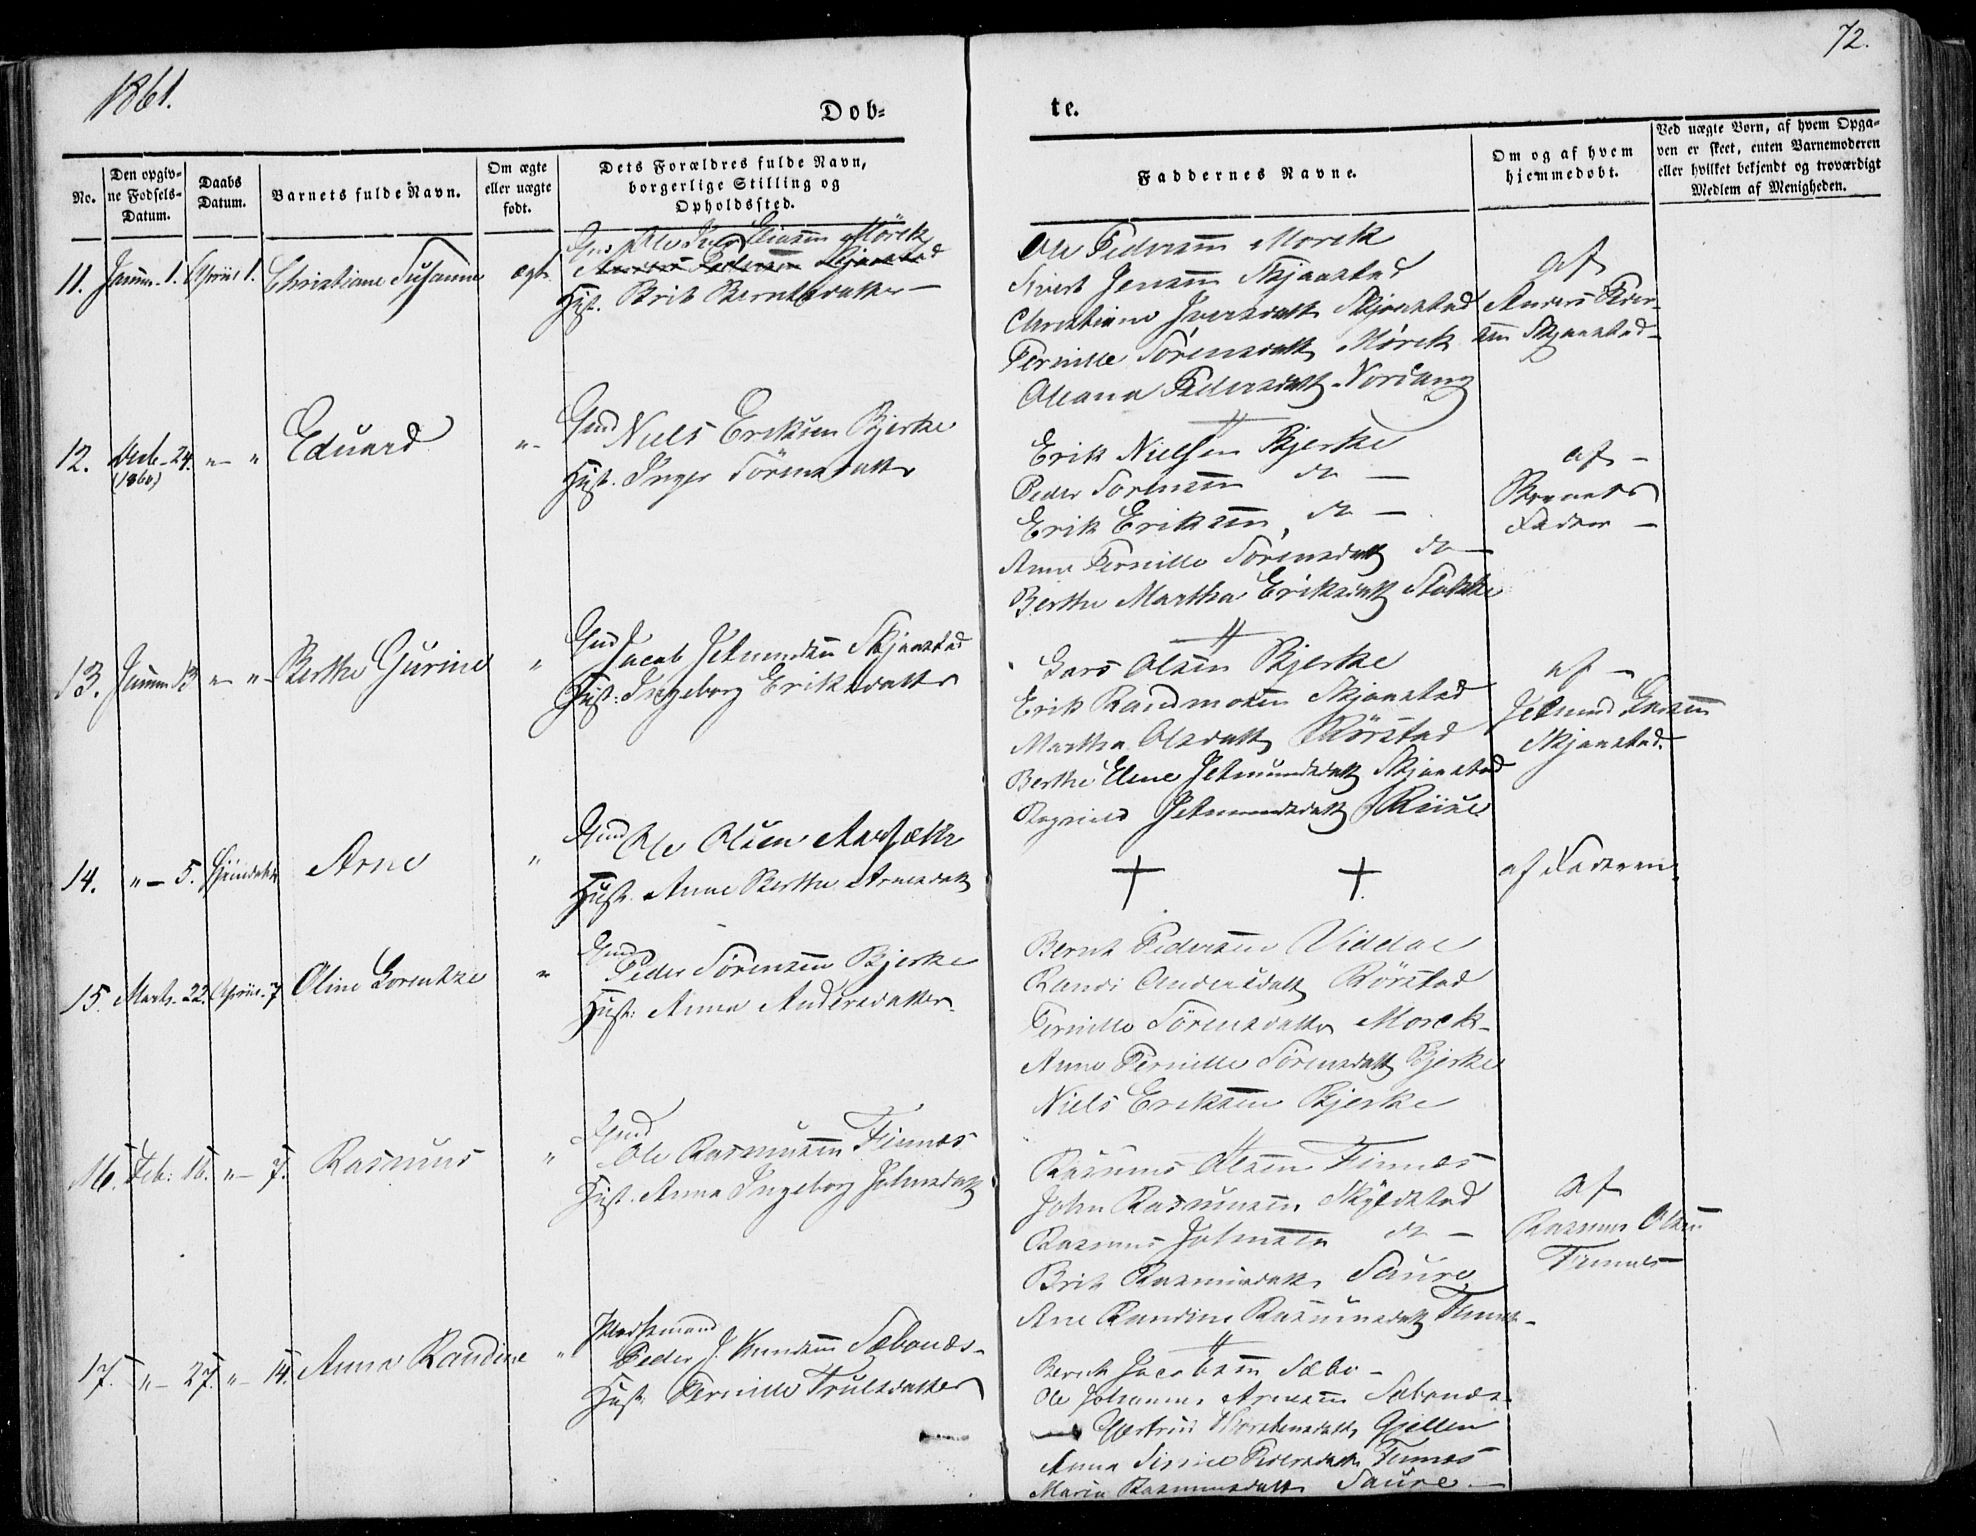 1861.
72.
Dob-
te.
No.
Den opgiv-
ne Fodsels-
Datum.
Daabs
Datum.
Barnets fulde Navn.
Om ægte
eller uægte
født.
Dets Forældres fulde Navn,
borgerlige Stilling og
Opholdssted.
Faddernes Navne.
Om og af hvem
hjemmedobt.
Ved uægte Born, af hvem Opga-
ven er skeet, enten Barnemoderen
eller hvilket bekjendt og troværdigt
Medlem af Menigheden.
11. 1. April 1. Christiane Susanne ægt.
Mörck
Anders Pedersen Skjaastad
Hust. Brit Berntsdatter
Ole Pedersen Morck
Sivert Jensen Skjaastad
Christiane Iversdatt Skjaastad
Pernille Sörensdatt Mörck
Oleana Pedersdatt Nordang
af
Anders Peder-
sen Skjaastad
12. Decb. 24. " " Eduard "
(1860)
Gmd Niels Eriksen Bjerke
Hust. Inger Sörensdatter
Erik Nielsen Bjerke
Peder Sorensen do
Erik Eriksen do
Anne Pernille Sörensdatt do
Berthe Martha Eriksdatt Stokke
af
Barnets
Fader
13. 13 " " Berthe Gurine "
Gmd Jacob Jetmundsen Skjaastad
Hust. Ingeborg Eriksdatter
Lars Olsen Bjerke
Erik Skjaastad
Martha Olsdatt Rörstad
Berthe Elene Jetmundsdatt Skjaastad
Jetmundsdatt Riise
af
Jetmund Larsen
Skjaastad.
14. " 5. Arne "
Gmd Ole Olsen Aarsæth
Hust. Anne Berthe Arnesdatt
af Faderen
15. Marts 22. April 7 Oline Lorentze "
Gmd Peder Sörensen Bjerke
Hust. Anna Andersdatter
Bernt Pedersen Viddal
Randi Andersdatt Rörstad
Pernille Sörensdatter Morck
Anne Pernille Sörensdatt Bjerke
Niels Eriksen Bjerke
16. Feb. 16. " 7. Rasmus "
Gmd
Ole Rasmussen Finnes
Hust. Anna Ingeborg Johnsdatt
Rasmus Olsen Finnes
John Rasmussen Skylstad
Rasmus Johnsen do
Brit Rasmusdatt Saure
Ane Randine Rasmusdatt Finnes
af
Rasmus Olsen
Finnes
17. " 27. " 14. Anne Randine "
Peder J. Knudsen Sæbönæs
Hust. Pernille Trulsdatter
Bernt Jacobsen Sæbö
Ole Johannes Arnesen Sæbönæs
Gjertrud Gjellen
Anna Pedersdatt Finnes
Maria Rasmusdatt Saure